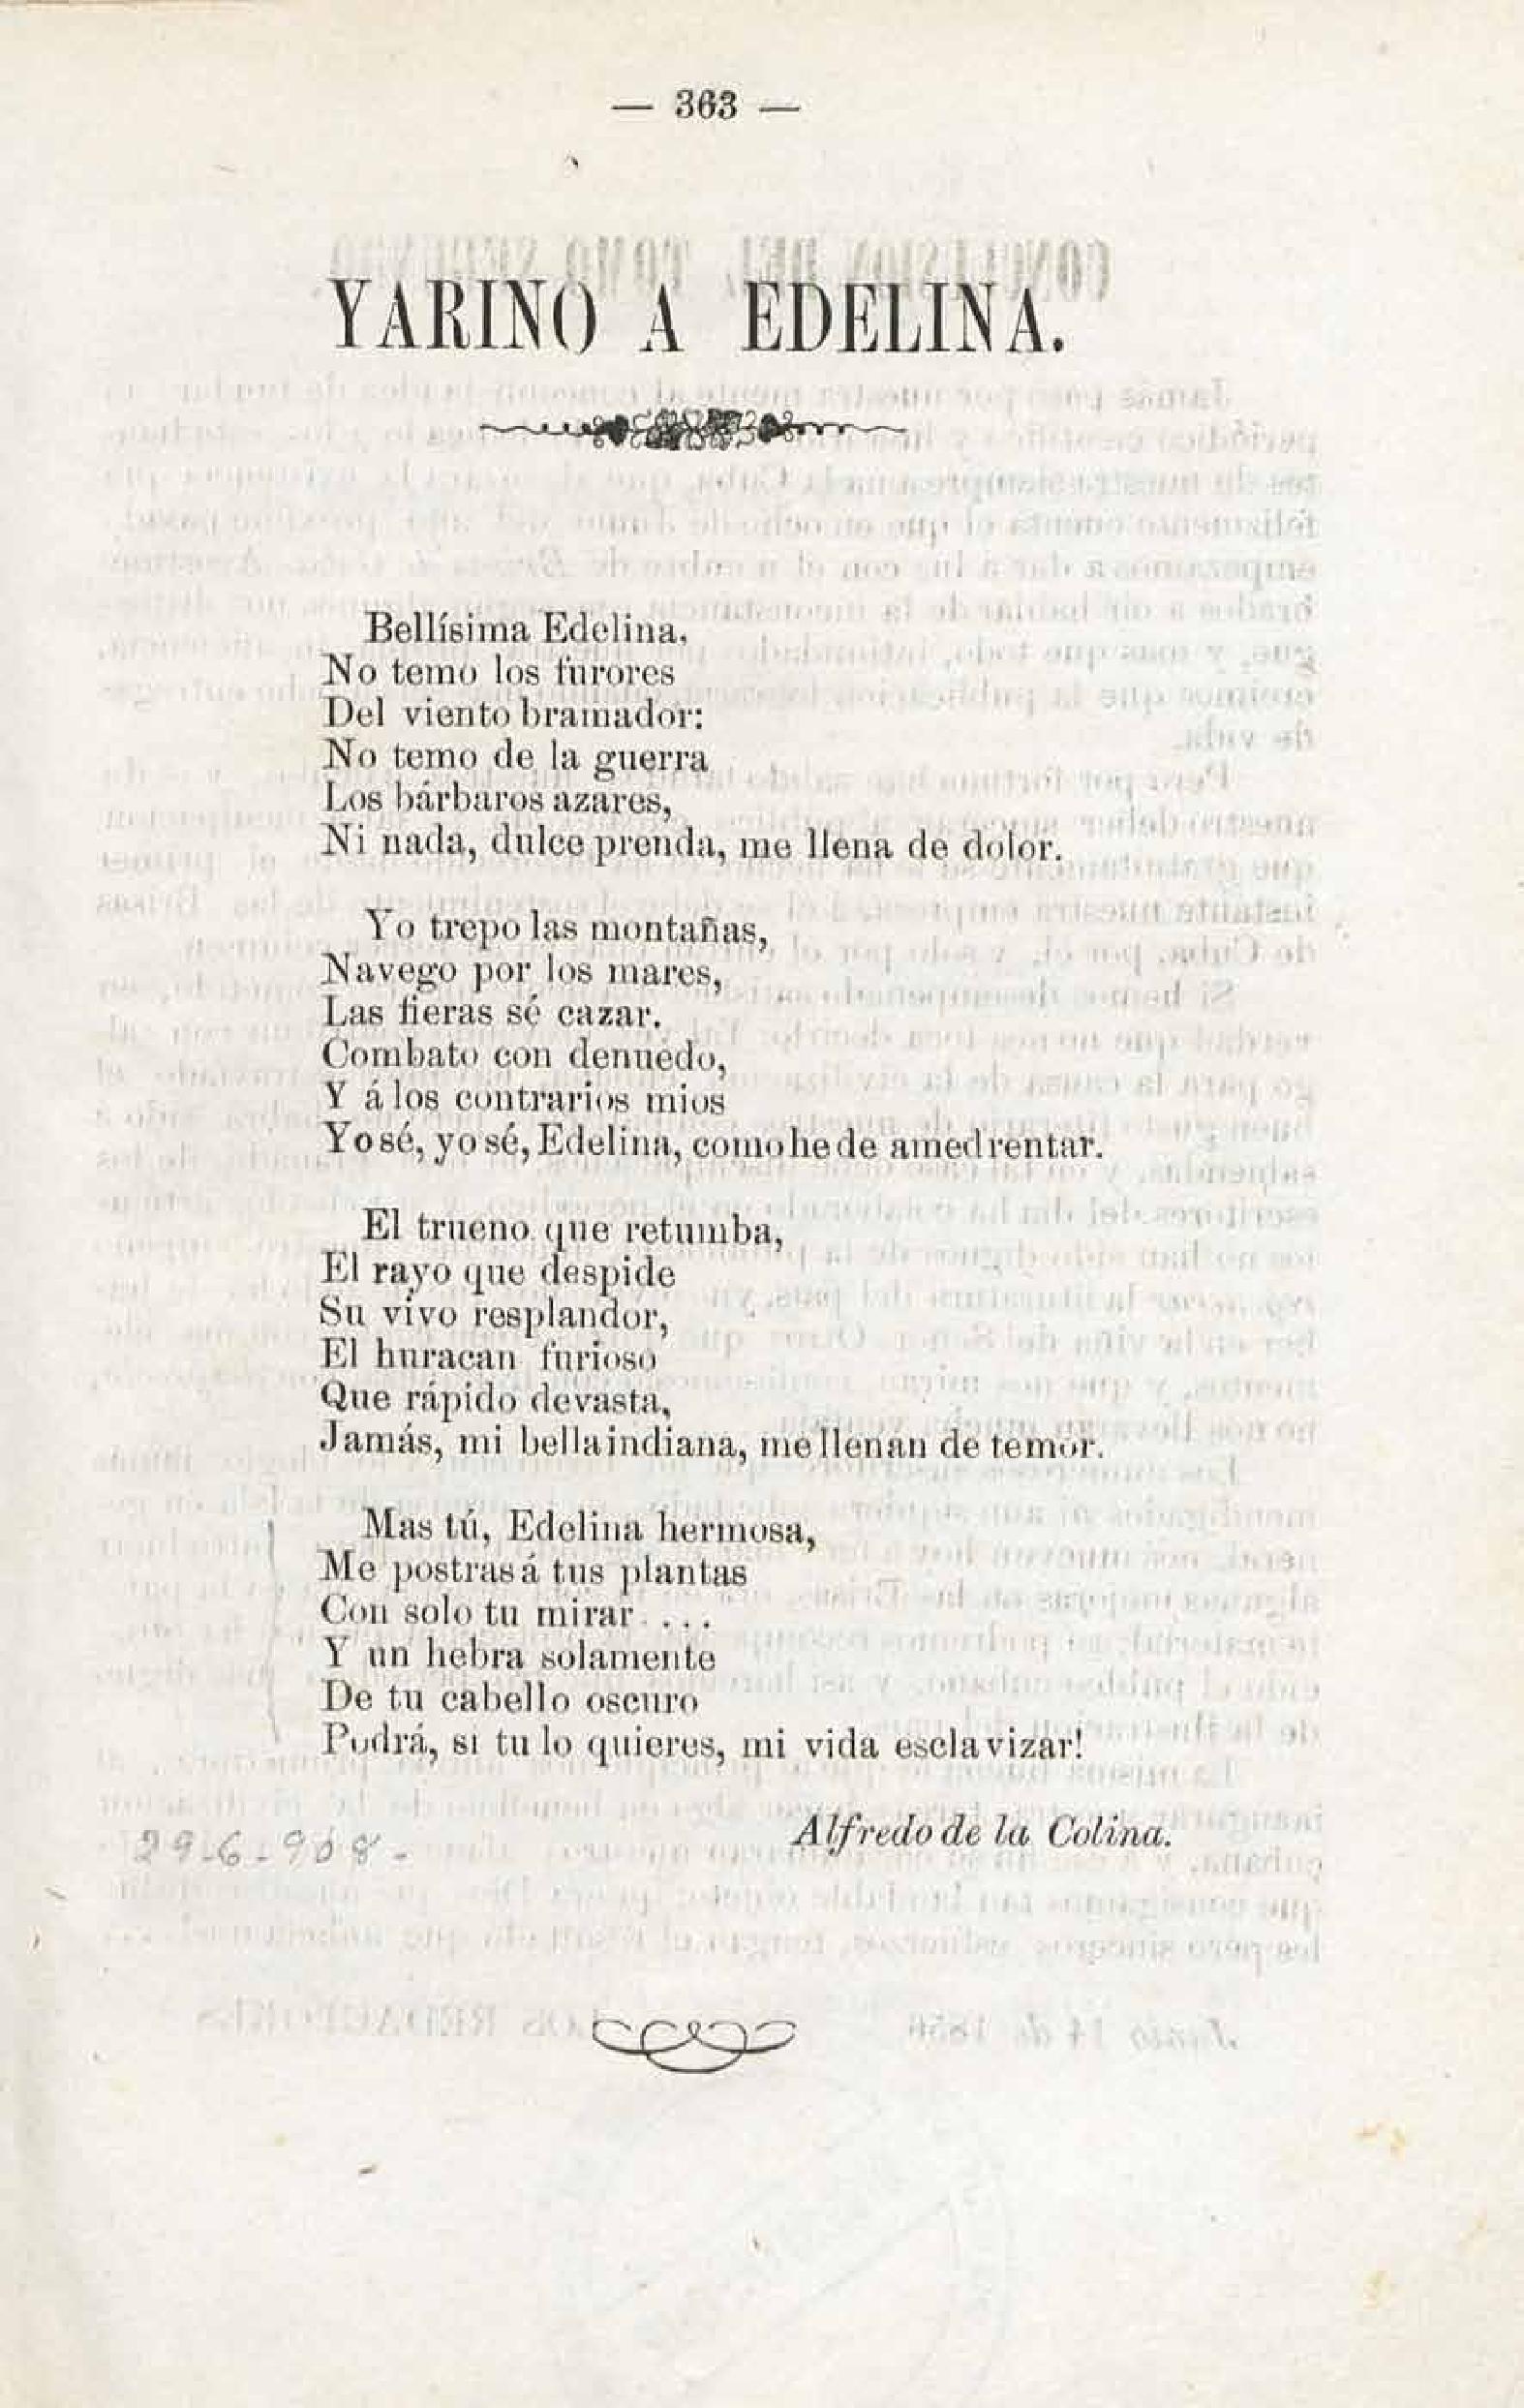 — 363 —
YARINO A EDELINA.
Bellísima Edelina,
No temo los furores
Del viento bramador:
No temo de la guerra
Los bárbaros azares,
Ni nada, dulce prenda, me llena de dolor.
Yo trepo las montañas,
Navego por los mares,
Las fieras sé cazar.
Combato con denuedo,
Y á los contrarios mios
Yo sé, yo sé, Edelina, como he de amedrentar.
El trueno que retumba,
El rayo que despide
Su vivo resplandor,
El huracan furioso
Que rápido devasta,
Jamás, mi bella indiana, me llenan de temor.
Mas tú, Edelina hermosa,
Me postras á tus plantas
Con solo tu mirar....
Y un hebra solamente
De tu cabello oscuro
Podrá, si tu lo quieres, mi vida esclavizar!
Alfredo de la Colina.
29-6-908-